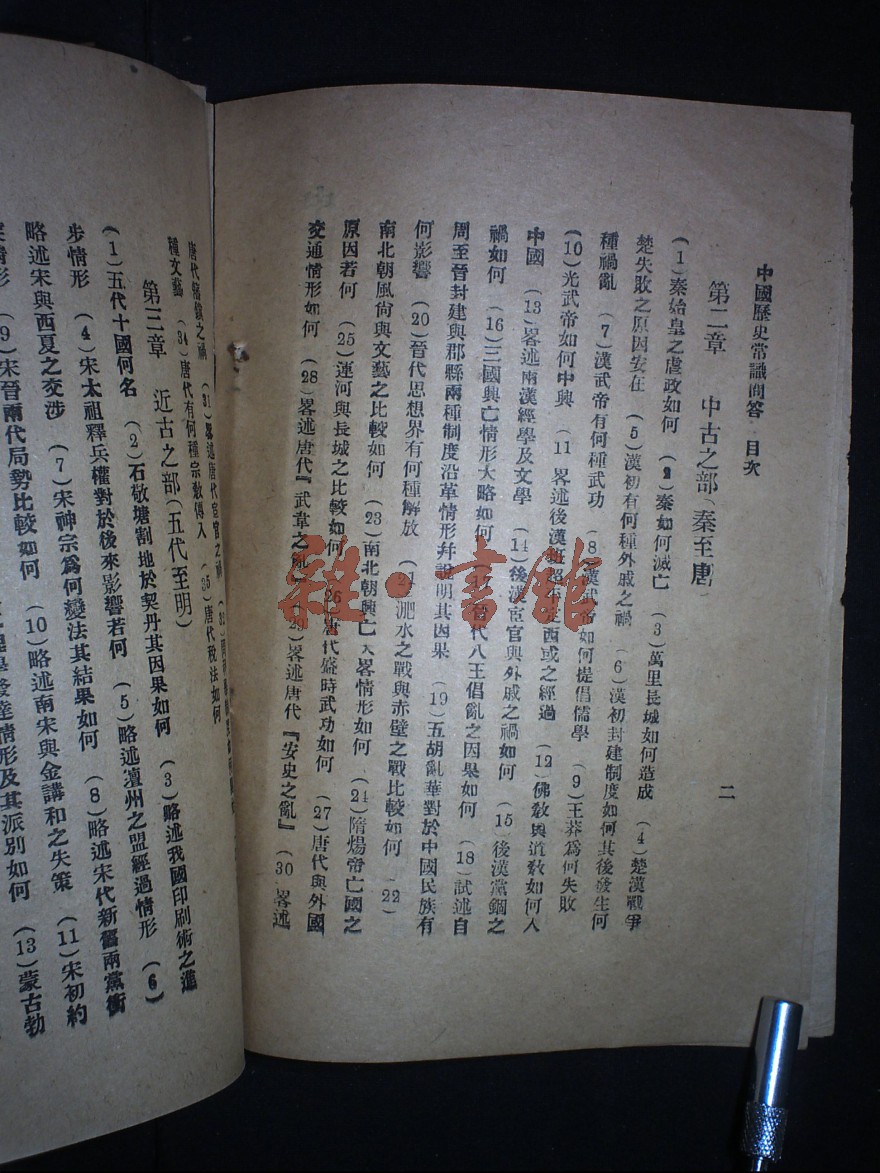 中國歷史常識問答 目次
二
第二章 中古之部(秦至唐)
(1)秦始皇之虐政如何 (2)秦如何滅亡 (3)萬里長城如何造成 (4)楚漢戰爭
楚失敗之原因安在 (5)漢初有何種外戚之禍 (6)漢初封建制度如何其後發生何
種禍亂 (7)漢武帝有何種武功 (8)漢武帝如何提倡儒學 (9)王莽爲何失敗
(10)光武帝如何中興 (11 畧述後漢班超平定西或之經過 (12)佛敎與道敎如何入
中國 (13)畧述兩漢經學及文學 (14)後漢宦官與外戚之禍如何 (15)後漢黨錮之
禍如何 (16)三國興亡情形大略如何 (17)晉代八王倡亂之因果如何 (18)試述自
周至晉封建與郡縣兩種制度沿革情形幷說明其因果 (19)五胡亂華對於中國民族有
何影響 (20)晉代思想界有何種解放 (21)淝水之戰與赤壁之戰比較如何 (22)
南北朝風尙與文藝之比較如何 (23)南北朝興亡大畧情形如何 (24)隋煬帝亡國之
原因若何 (25)運河與長城之比較如何 (26)唐代盛時武功如何 (27)唐代與外國
交通情形如何 (28)畧述唐代『武韋之亂』 (29)畧述唐代『安史之亂』 (30 畧述
唐代藩鎮之禍 (31)畧述唐代宦官之禍 (32)
種文藝 (34)唐代有何種宗敎傳入 (35)唐代稅法如何
第三章 近古之部(五代至明)
(1)五代十國何名 (2)石敬塘割地於契丹其因果如何 (3)略述我國印刷術之進
步情形 (4)宋太祖釋兵權對於後來影響若何 (5)略述澶州之盟經過情形 (6)
略述宋與西夏之交涉 (7)宋神宗爲何變法其結果如何 (8)略述宋代新舊兩黨衝
突情形 (9)宋晉兩代局勢比較如何 (10)略述南宋與金講和之失策 (11)宋初約
學發達情形及其派別如何 (13)蒙古勃
雜·書館